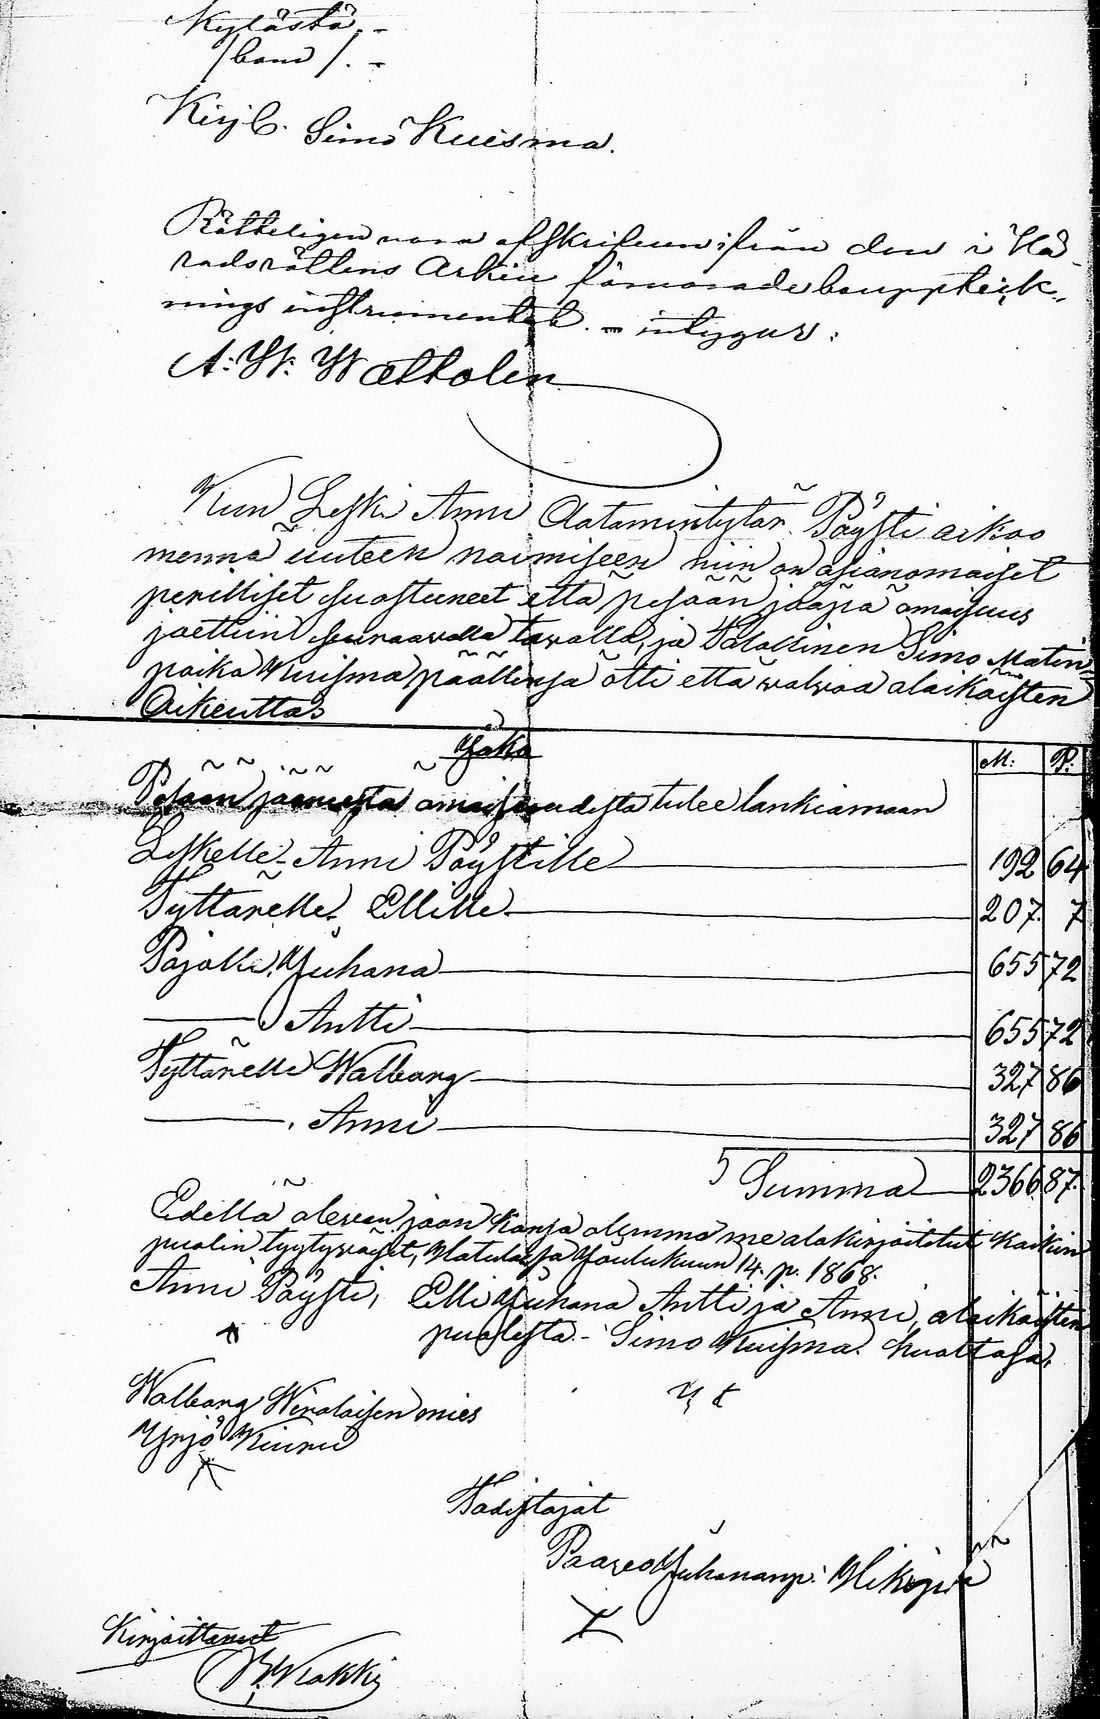 Kylästä. -
/bom/. -
Kirj C. Simo Kuisma.
Rätteligen vara afskrifven ifrån den i Hä-
radsrättens Arkiv förvarade bouppteck-
nings instrumentet. - intygar:
A: W: Wætholen
Kun Leski Anni Aatamintytär Pöysti aikoo
mennä uuteen naimiseen niin on asianomaiset
perilliset suostuneet että pesään jäänyä omaisuus
jaettiin seuraavalla tavalla, ja Talollinen Simo Matin
poika Kuisma päällensä otti että walwoa alaikäisten
Oikeuttas
Jako
M: P:
Pesään jäänestä omaisuudesta tulee lankiamaan
Leskelle Anni Pöystille 192 64
Tyttärelle Ellille 207. 7
Pojalle Juhana 655 72
" Antti 655 72
Tyttärelle Walborg 327 86
" . Anni 327 86
Summa 2366 87.
Edellä olevan jaon kansa olemma me alakirjoitetut kaikin
puolin tyytyväiset, Joulukuun 14. p. 1868.
Anni Pöysti, Elli Juhana Antti ja Anni, alaikäisten
puolesta - Simo Kuisma. huoltaja.
Walborg Wirolaisen mies
Yrjö Kiuru
Todistajat
Paavo Juhananp:
Kirjoittanut